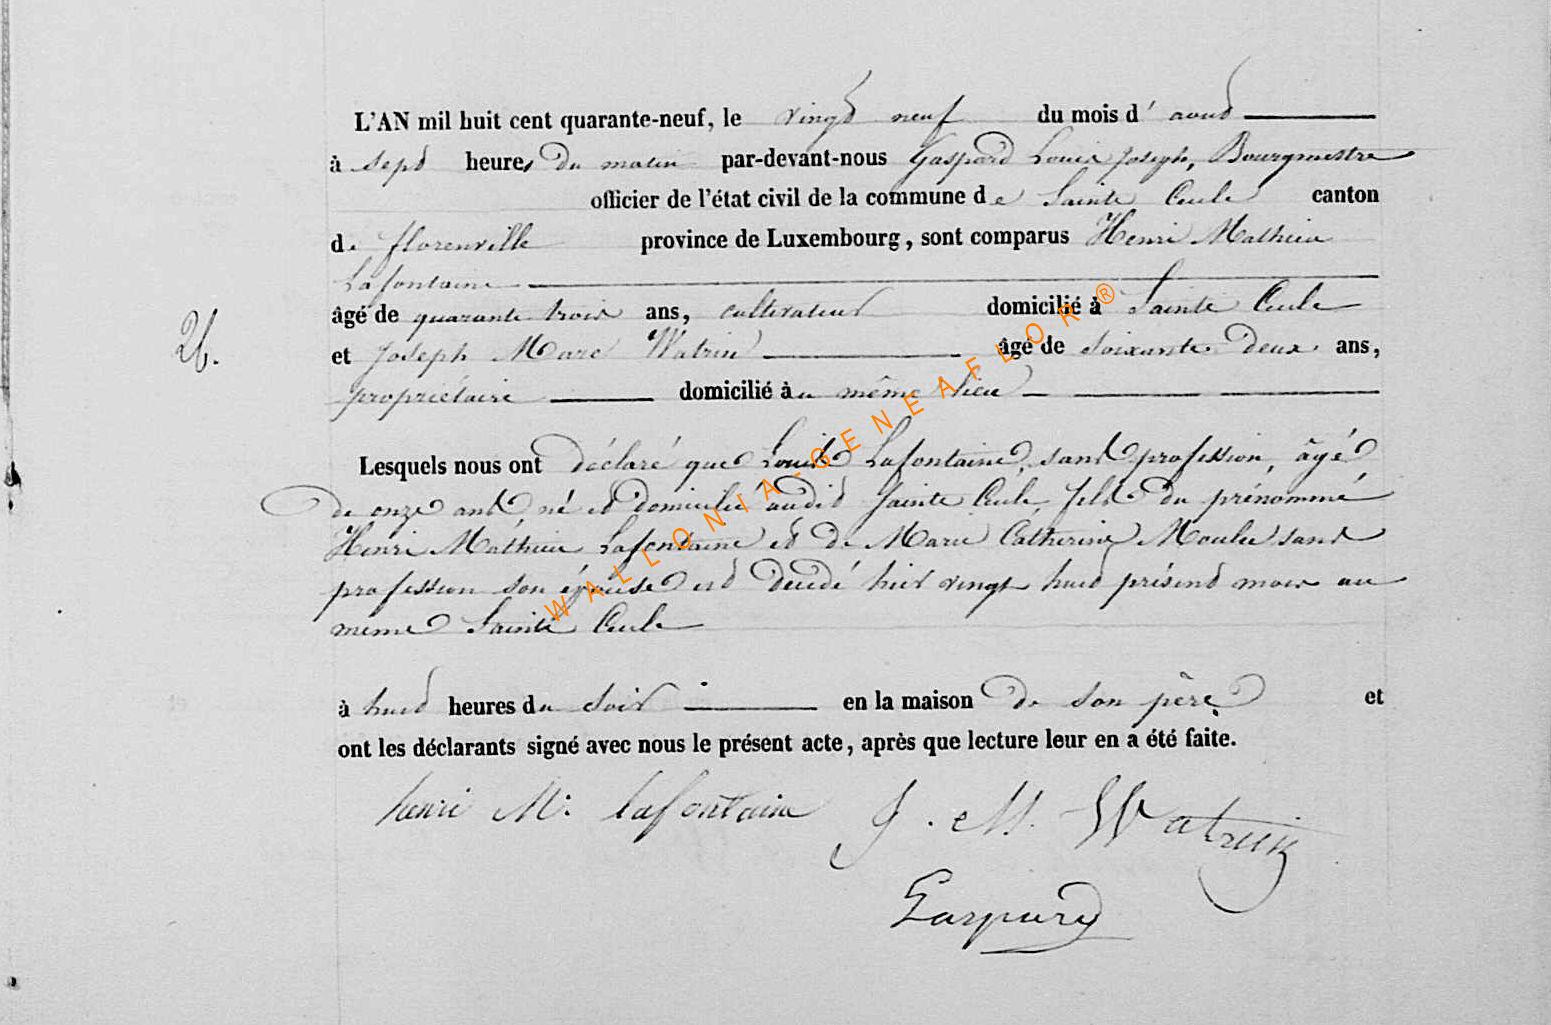 L'AN mil huit cent quarante-neuf, le vingt neuf du mois d'aout
à sept heures du matin par-devant-nous Gaspard Louis Joseph, Bourgmestre
officier de l'état civil de la commune de Sainte Cécile canton
de florenville province de Luxembourg, sont comparus Henri Mathieu
Lafontaine
âgé de quarante trois ans, cultivateur domicilié à Sainte Cécile
26.
et Joseph Marc Watrin âgé de soixante deux ans,
propriétaire domicilié au même lieu
Lesquels nous ont déclaré que Louis Lafontaine, sans profession, âgé
de onze ans, né et domicilié audit Sainte Cécile, fils du prénommé
Henri Mathieu Lafontaine et de Marie Catherine Moulu sans
profession son épouse est décédé hier vingt huit présent mois au
meme Sainte Cécile
à huit heures du soir en la maison de son père et
ont les déclarants signé avec nous le présent acte, après que lecture leur en a été faite.
henri M. lafontaine J. M. Watrin
Gaspard
WALLONIA-GENEAFLOR ®